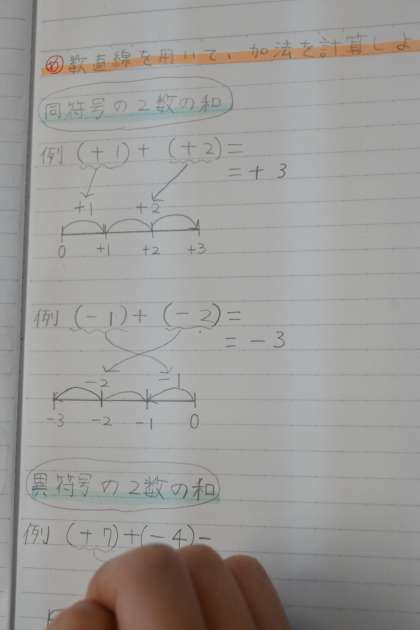 め 数直線を用いて、加法を計算しよ
同符号の2数の和
例 (+1)+(+2)=
=+3
+1 +2
0 +1 +2 +3
例 (-1)+(-2)=
=-3
-2 -1
-3 -2 -1 0
異符号の2数の和
例 (+7)+(-4)=